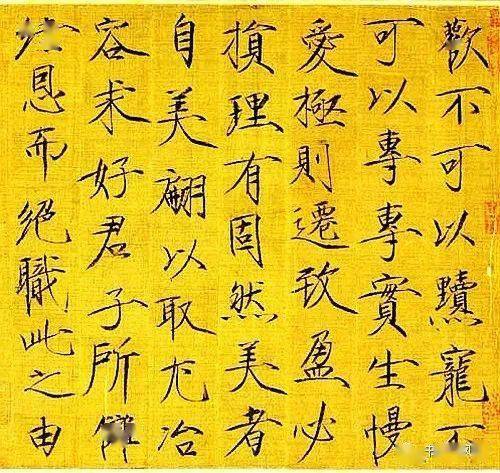 歡不可以黷寵不
可以專專實生慢
愛極則遷致盈必
損理有固然美者
自美翩以取尤冶
容求好君子所
恩而絕職此之由